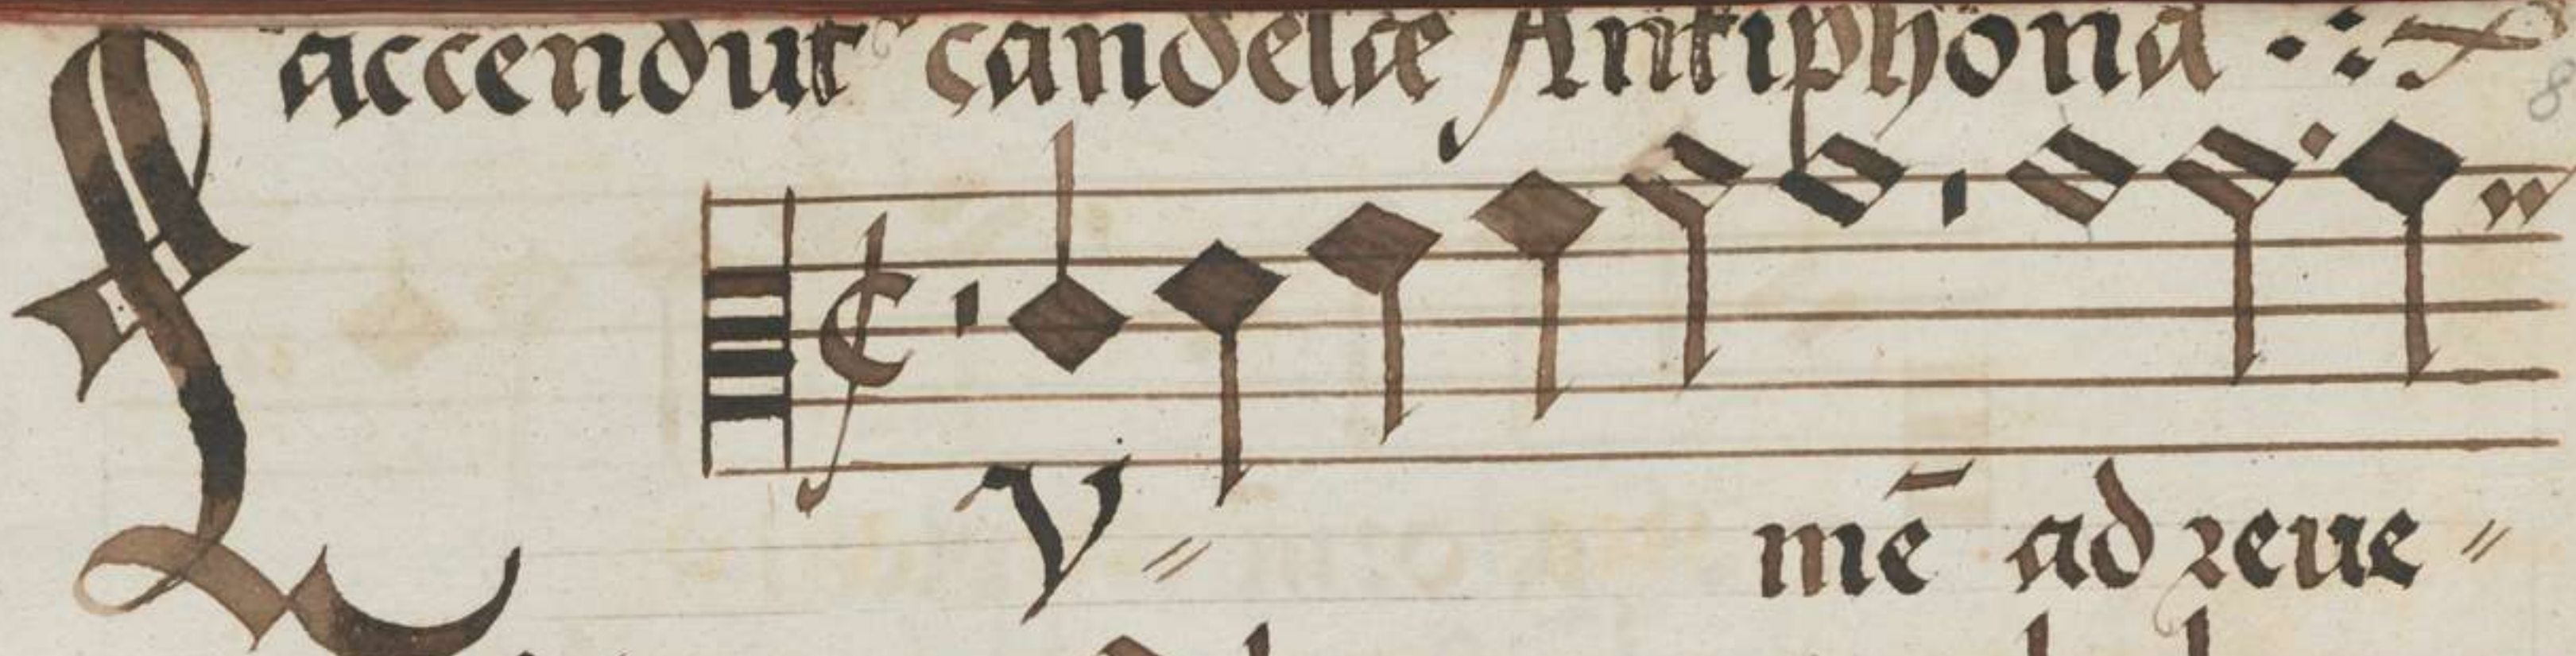 accendut᷑ candelæ Antiphona
8
L V= mē ad reue=